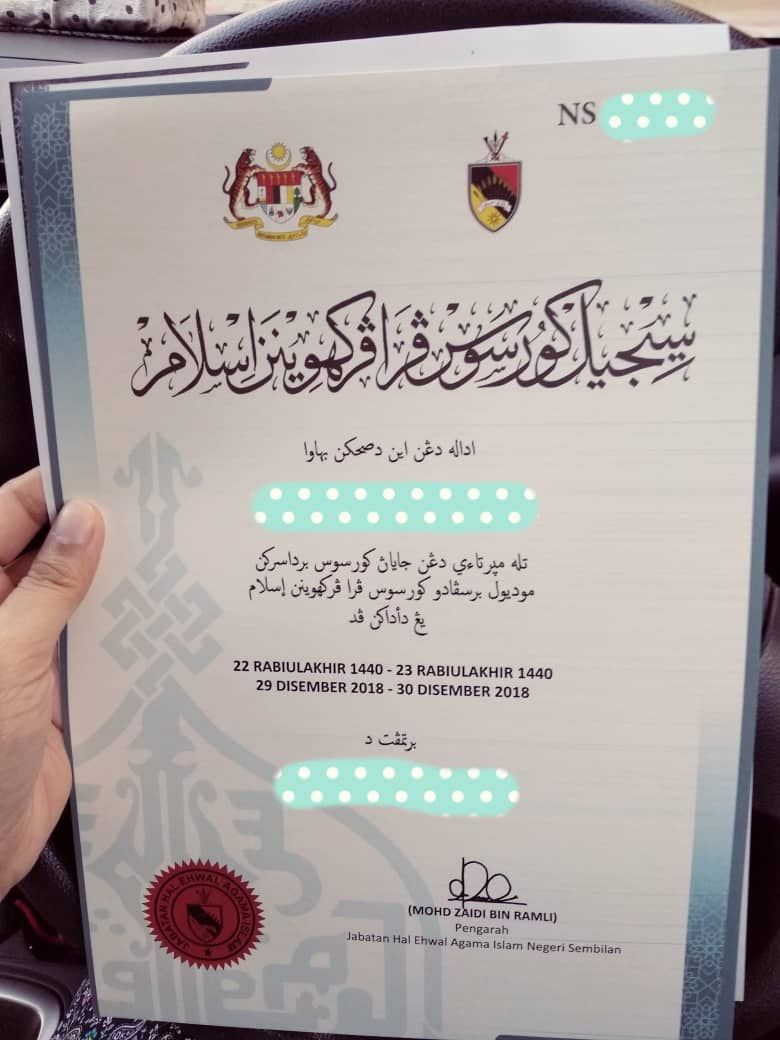 NS
سيجيل کورسوس ڤرا ڤرکهوينن إسلام
اداله دڠن اين دصحکن بهاوا
تله مڽرتاءي دڠن جاياڽ کورسوس برداسرکن
موديول برسڤادو کورسوس ڤرا ڤرکهوينن إسلام
يڠ دأداکن ڤد
22 RABIULAKHIR 1440 - 23 RABIULAKHIR 1440
29 DISEMBER 2018 - 30 DISEMBER 2018
برتمڤت د
(MOHD ZAIDI BIN RAMLI)
Pengarah
Jabatan Hal Ehwal Agama Islam Negeri Sembilan
JABATAN HAL EHWAL AGAMA ISLAM